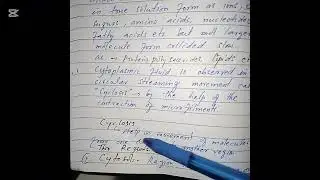 in true solution form as ions,
Sugars, amino acids, nucleotides
Fatty acids etc but not larger
molecule form colloidal
as → Proteins, polysaccrides, lipids etc
Cytoplasmic fluid is observed in
circular streaming movement call
"Cyclosis" → by the help of the
contraction of microfilments.
Cyclosis
→ Help in movement of molecules
From one to another region
Region
① Cytosol Region